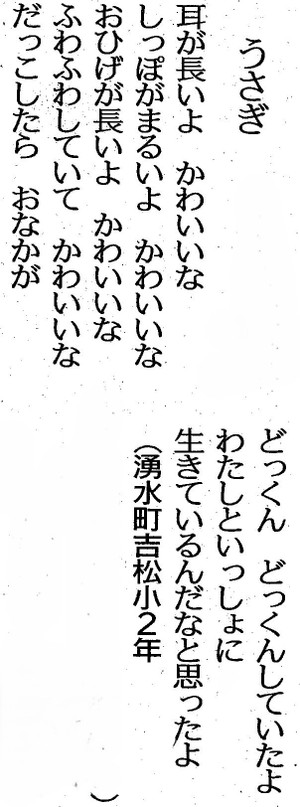 うさぎ
耳が長いよ　かわいいな
しっぽがまるいよ　かわいいな
おひげが長いよ　かわいいな
ふわふわしていて　かわいいな
だっこしたら　おなかが
どっくん　どっくんしていたよ
わたしといっしょに
生きているんだなと思ったよ
（湧水町吉松小２年　　　　　）